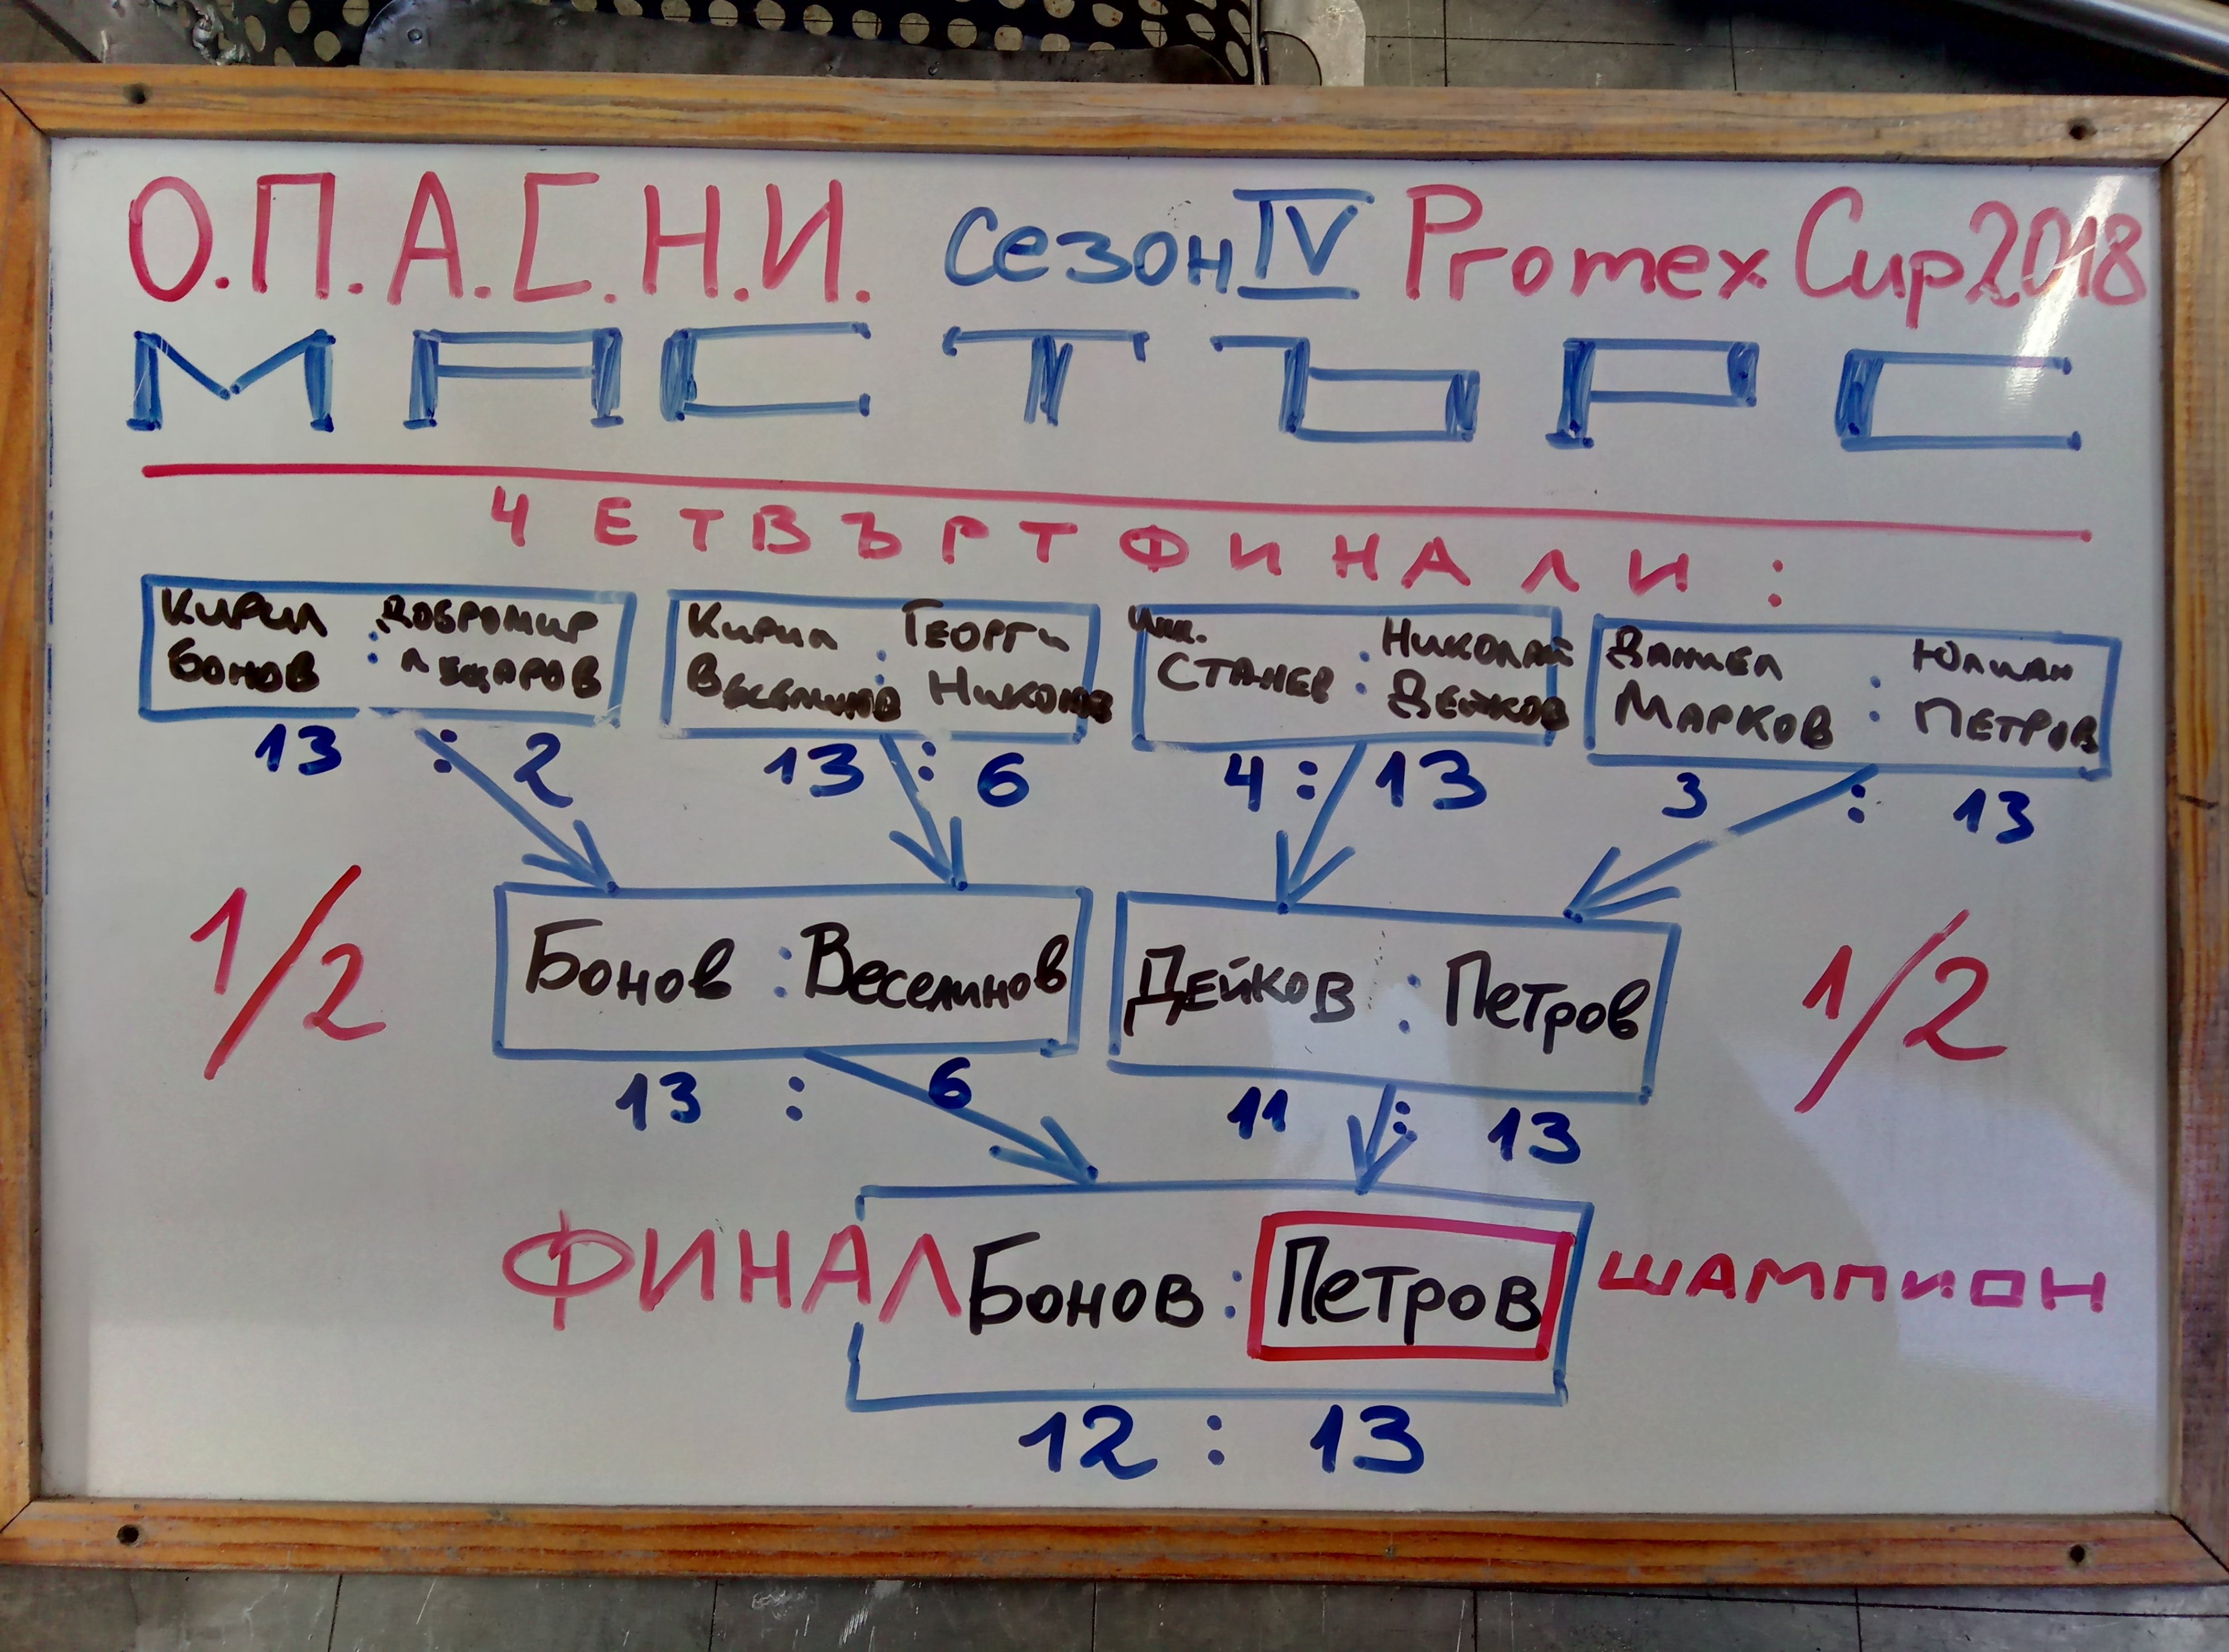 О.П.А.С.Н.И. Сезон IV Promex Cup 2018
МАСТЪРС
ЧЕТВЪРТФИНАЛИ:
Кирил Бонов : Добромир Луцаров
13 : 2
Кирил Веселинов : Георги Николов
13 : 6
Инж. Станев : Николай Дейков
4 : 13
Даниел Марков : Юлиан Петров
3 : 13
1/2
Бонов : Веселинов
13 : 6
Дейков : Петров
11 : 13
1/2
ФИНАЛ Бонов : Петров ШАМПИОН
12 : 13